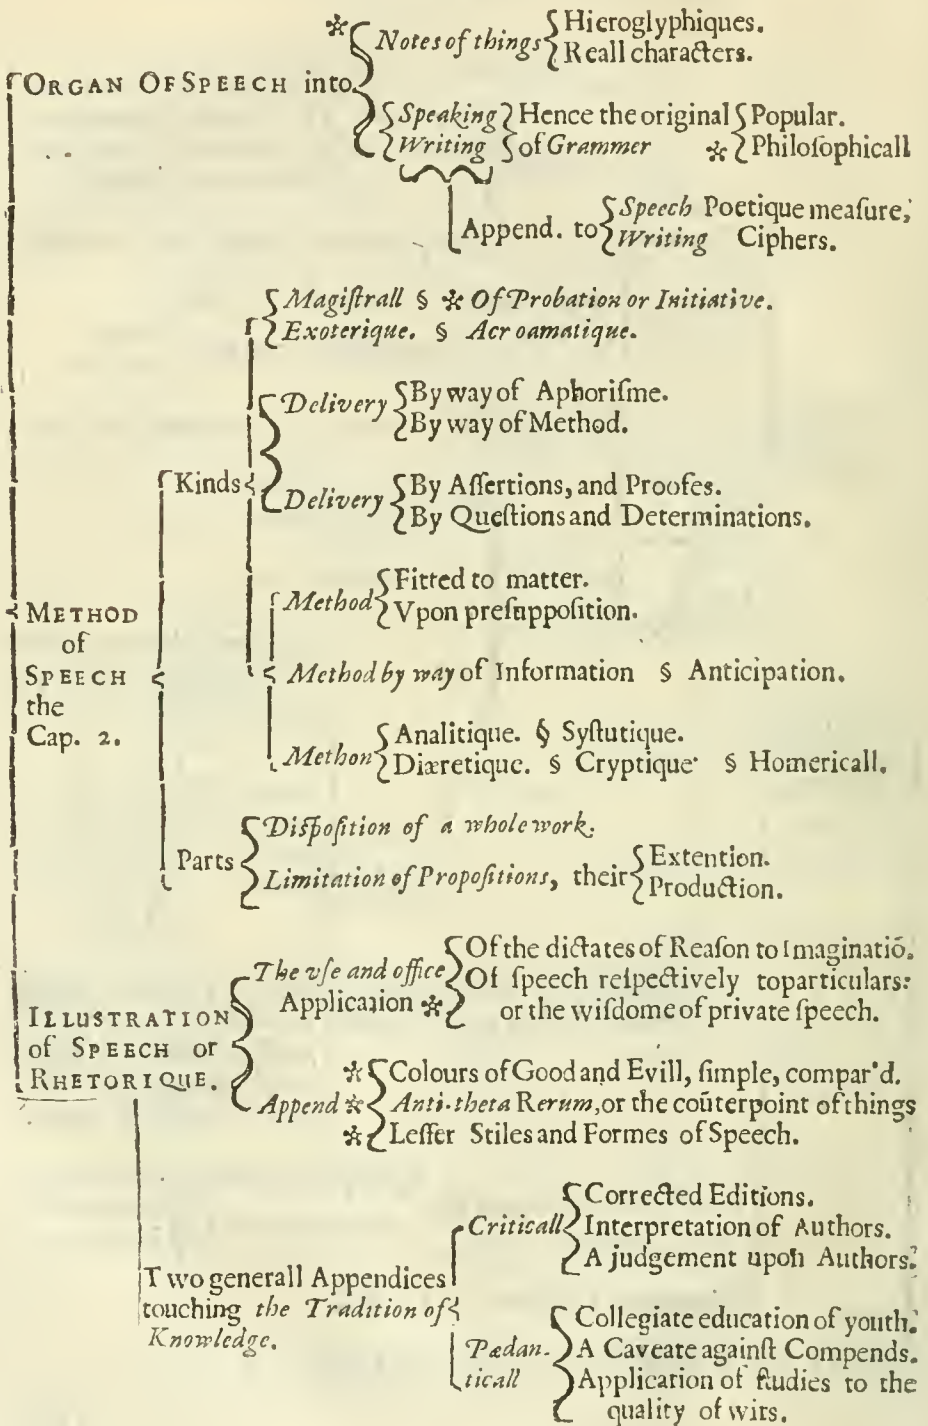 * Notes of things Hieroglyphiques.
Reall characters.
ORGAN OF SPEECH into
Speaking Hence the original Popular.
Writing of Grammer * Philoſophicall
Append. to Speech Poetique meaſure,
Writing Ciphers.
Magiſtrall § * Of Probation or Initiative.
Exoterique. § Acroamatique.
Delivery By way of Aphoriſme.
By way of Method.
Kinds
Delivery By Aſſertions, and Proofes.
By Queſtions and Determinations.
Method Fitted to matter.
Vpon preſuppoſition.
METHOD
of
SPEECH
the
Cap. 2.
Method by way of Information § Anticipation.
Methon Analitique. § Syſtutique.
Diæretique. § Cryptique § Homericall.
Parts Diſpoſition of a whole work.
Limitation of Propoſitions, their Extention.
Production.
ILLUSTRATION
of SPEECH or
RHETORIQUE.
The vſe and office Of the dictates of Reaſon to Imaginatiõ.
Application * Of ſpeech reſpectively toparticulars:
or the wiſdome of private ſpeech.
* Colours of Good and Evill, ſimple, compar'd.
Append * Anti-theta Rerum, or the coũterpoint of things
* Leſſer Stiles and Formes of Speech.
Two generall Appendices
touching the Tradition of
Knowledge.
Criticall Corrected Editions.
Interpretation of Authors.
A judgement upon Authors.
Pædan-
ticall
Collegiate education of youth.
A Caveate againſt Compends.
Application of ſtudies to the
quality of wits.